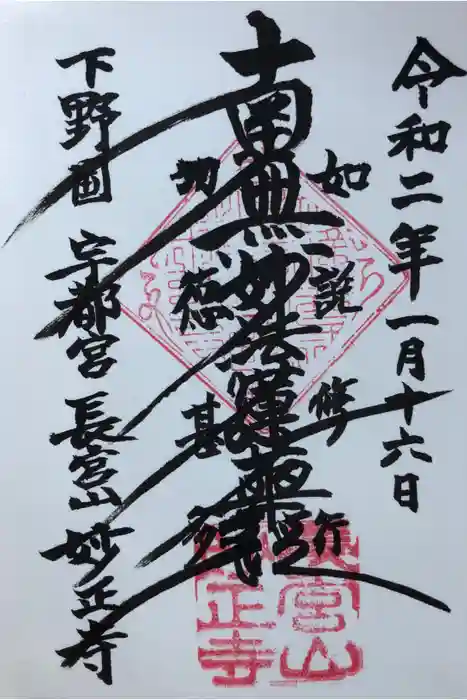 令和二年一月十六日
如説修行
南無妙法蓮華経
功徳甚多
下野国 宇都宮 長宮山 妙正寺
長宮山
妙正寺